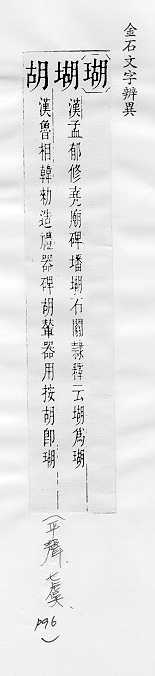 金石文字辨異
瑚
漢孟郁修堯廟碑墦石闕隸釋云爲瑚
胡漢魯相韓勑造禮器碑胡輦器用按胡即瑚
(平聲、七虞、p96)